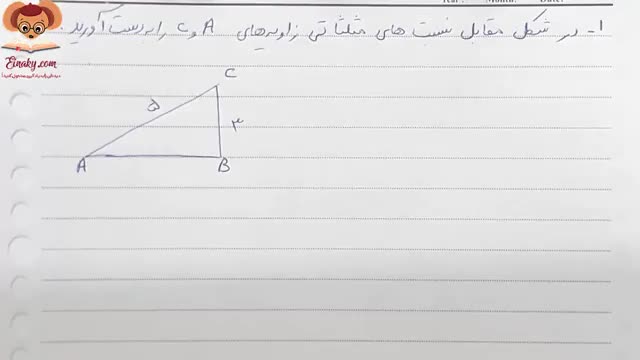 ۱- در شکل مقابل نسبت های مثلثاتی زاویه‌های A و C را به دست آورید.
Einaky.com
C
۵
۳
A
B